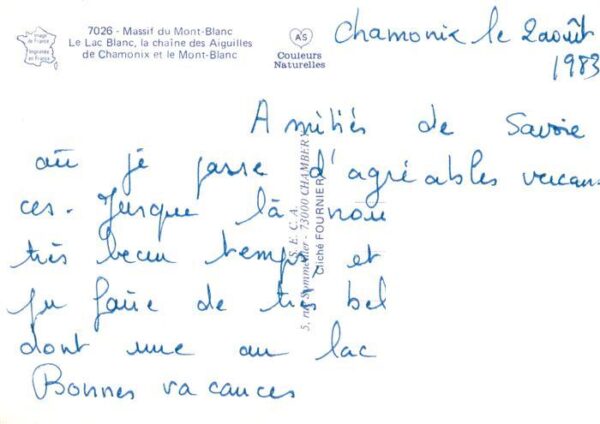 Image
de France
Imprimée
en France
7026 - Massif du Mont-Blanc
Le Lac Blanc, la chaîne des Aiguilles
de Chamonix et le Mont-Blanc
AS
Couleurs
Naturelles
Chamonix le 2 août
1983
Amitiés de Savoie
où je passe d'agréables vacan
ces. Jusque là nou
très beau temps, et
pu faire de très bel
dont une au lac
Bonnes vacances
S.E.C.A.
5, rue Sommeiller - 73000 CHAMBERY
Cliché FOURNIER